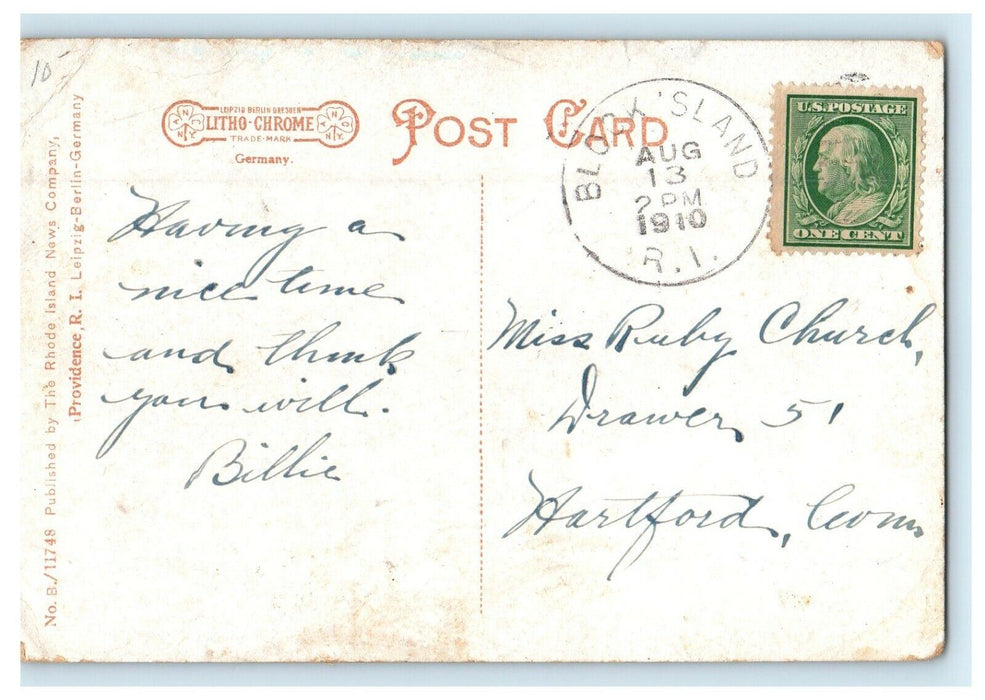 10-
LEIPZIG BERLIN DRESDEN
LITHO-CHROME
TRADE-MARK
Germany.
POST CARD
BLOCK ISLAND
AUG
13
2 PM
1910
R.I.
U.S. POSTAGE
ONE CENT
Having a
nice time
and think
you will.
Billie
Miss Ruby Church,
Drawer 51
Hartford, Conn
No. B./11748 Published by The Rhode Island News Company,
Providence, R. I. Leipzig-Berlin-Germany